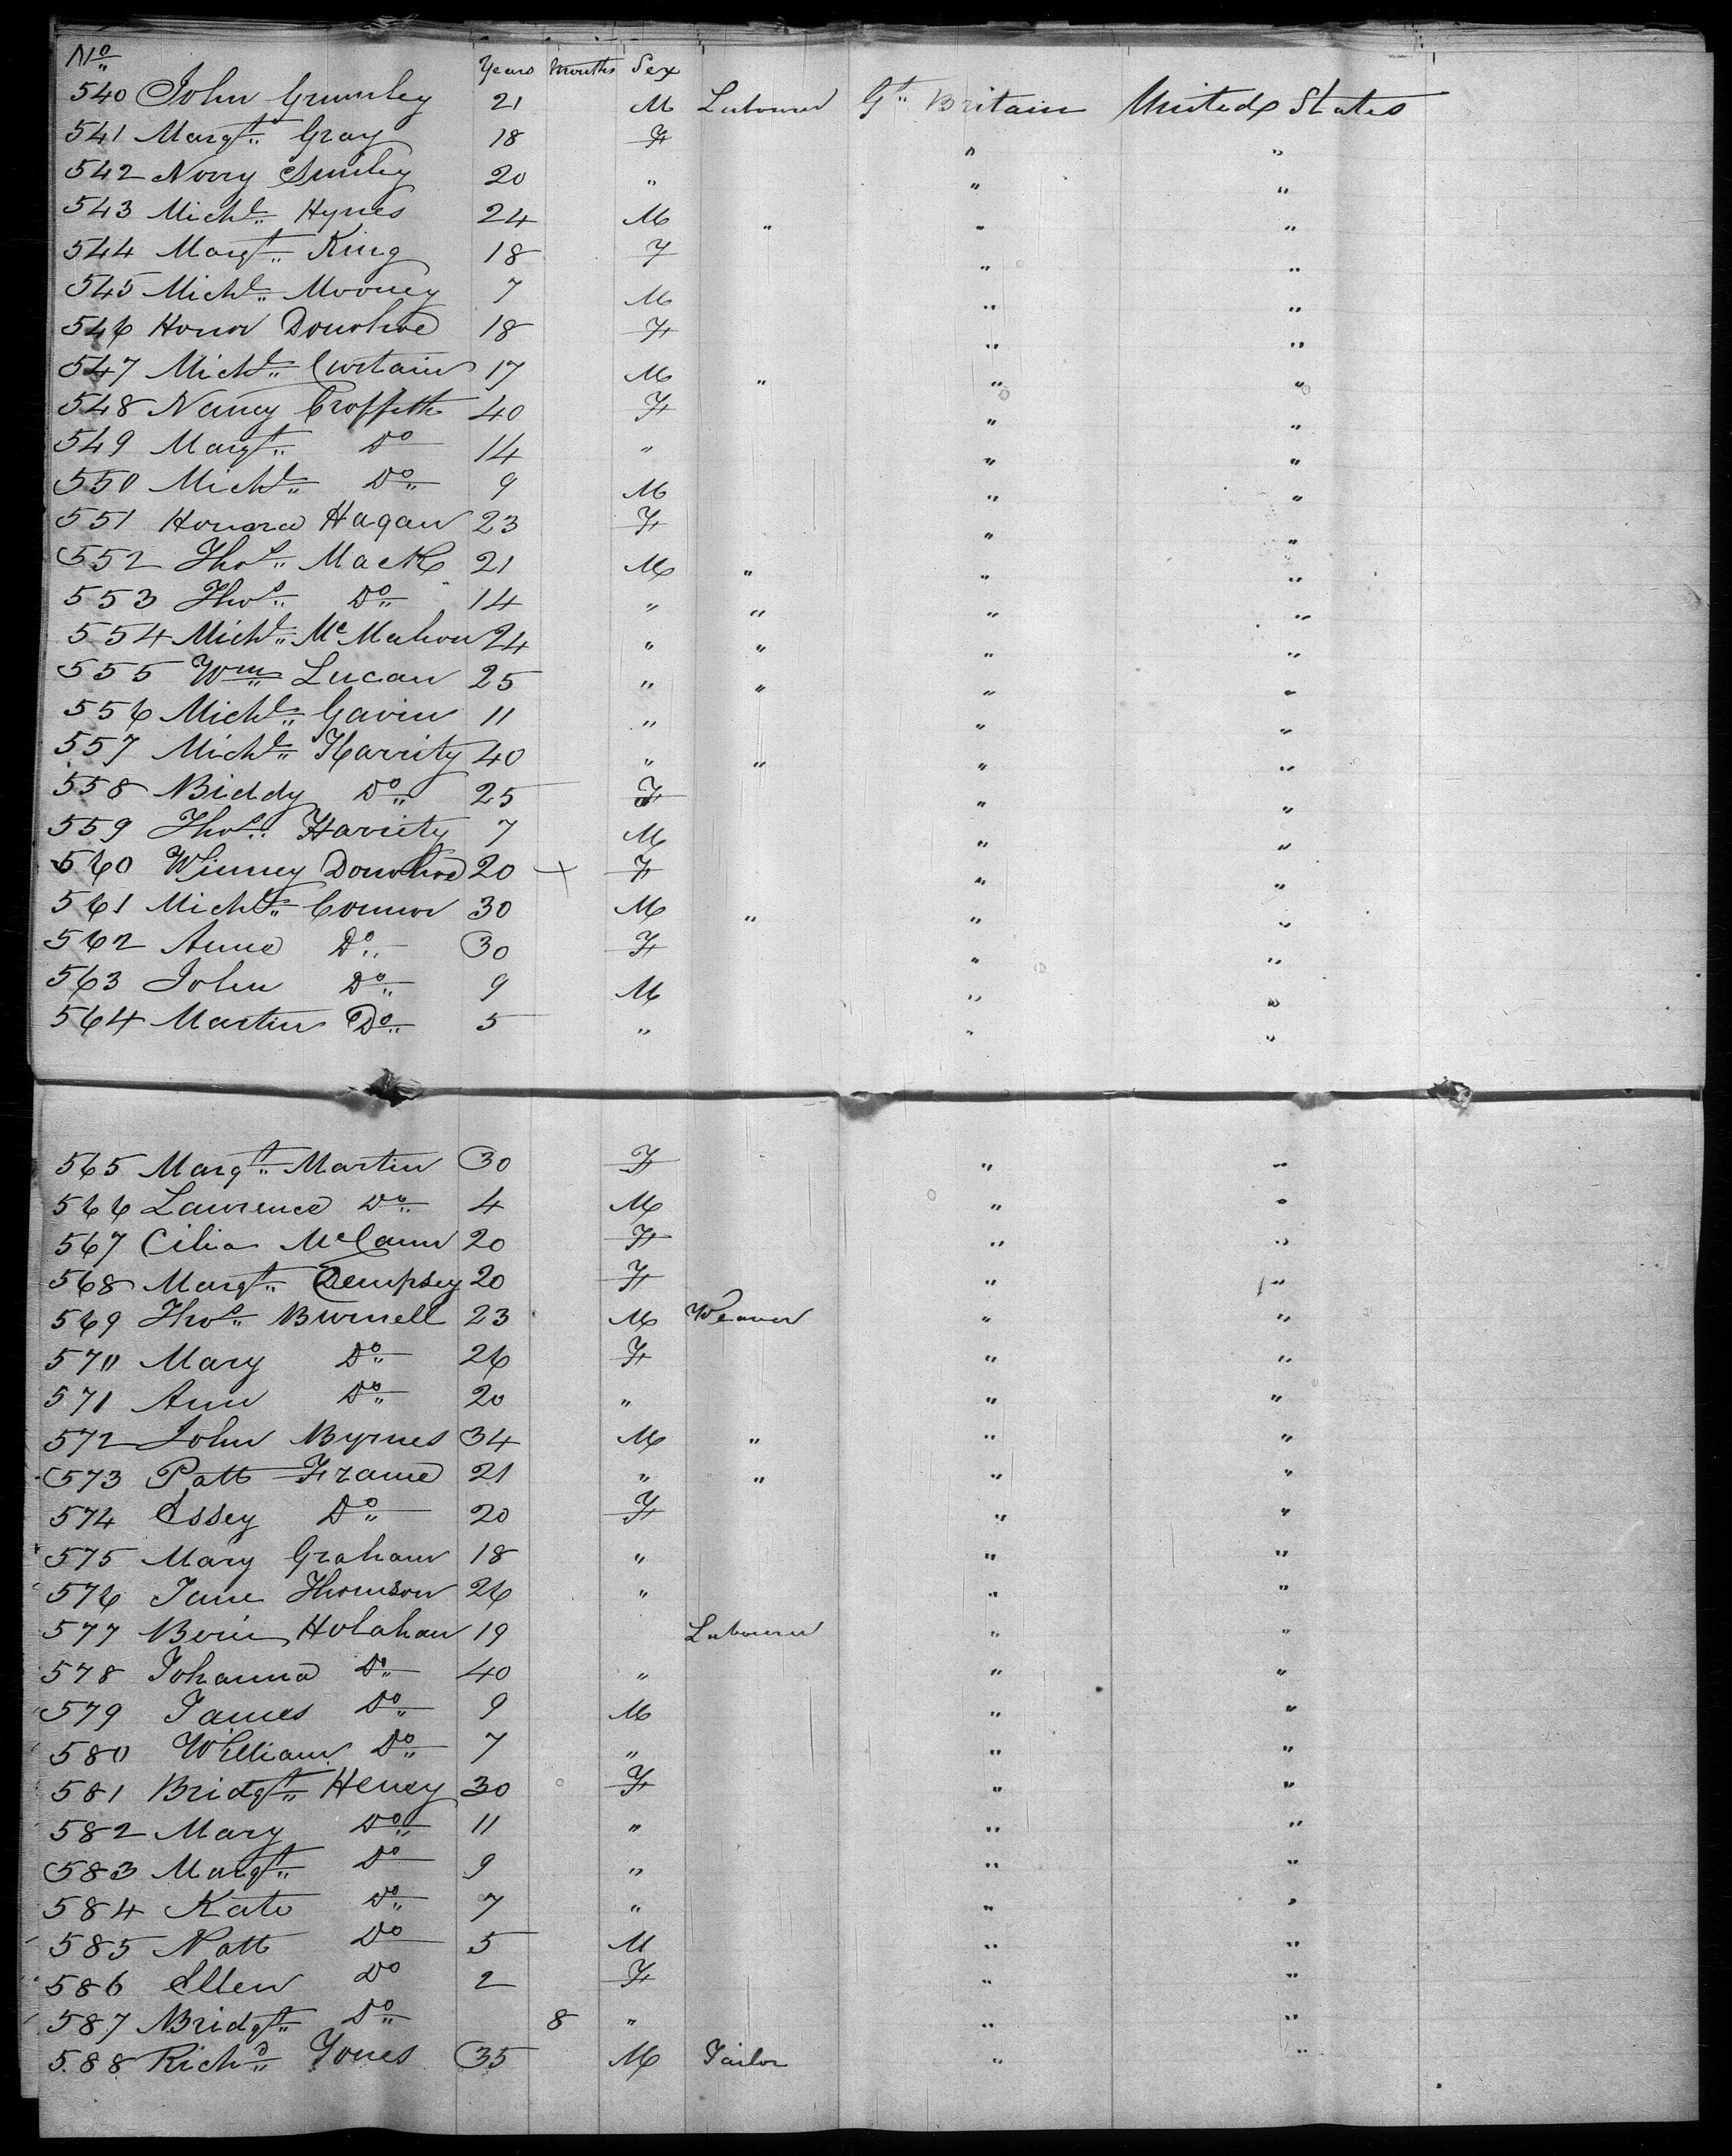 No Years Months Sex
540 John Grumley 21 M Labourer Gt Britain United States
541 Margt Gray 18 F " "
542 Nory Smiley 20 " " "
543 Michl Hynes 24 M " " "
544 Margt King 18 F " "
545 Michl Mooney 7 M " "
546 Honor Donohoe 18 F " "
547 Michl Curtain 17 M " " "
548 Nancy Croffeth 40 F " "
549 Margt Do 14 " " "
550 Michl Do 9 M " "
551 Honora Hagan 23 F " "
552 Thos Mack 21 M " " "
553 Thos Do 14 " " " "
554 Michl McMahon 24 " " " "
555 Wm Lucan 25 " " " "
556 Michl Gavin 11 " " "
557 Michl Harrity 40 " " " "
558 Biddy Do 25 F " "
559 Thos Harrity 7 M " "
560 Winney Donohoe 20 + F " "
561 Michl Connor 30 M " " "
562 Anne Do 30 F " "
563 John Do 9 M " "
564 Martin Do 5 " " "
565 Margt Martin 30 F " "
566 Lawrence Do 4 M " "
567 Cilia McCann 20 F " "
568 Margt Dempsey 20 F " "
569 Thos Burnell 23 M Weaver " "
570 Mary Do 26 F " "
571 Ann Do 20 " " "
572 John Byrnes 34 M " " "
573 Patt Frame 21 " " " "
574 Essey Do 20 F " "
575 Mary Graham 18 " " "
576 Jane Thomson 26 " " "
577 Holahan 19 Labourer " "
578 Johanna Do 40 " " "
579 James Do 9 M " "
580 William Do 7 " " "
581 Bridgt Heney 30 F " "
582 Mary Do 11 " " "
583 Margt Do 9 " " "
584 Kate Do 7 " " "
585 Natt Do 5 M " "
586 Ellen Do 2 F " "
587 Bridgt Do 8 " " "
588 Richd Jones 35 M Tailor " "